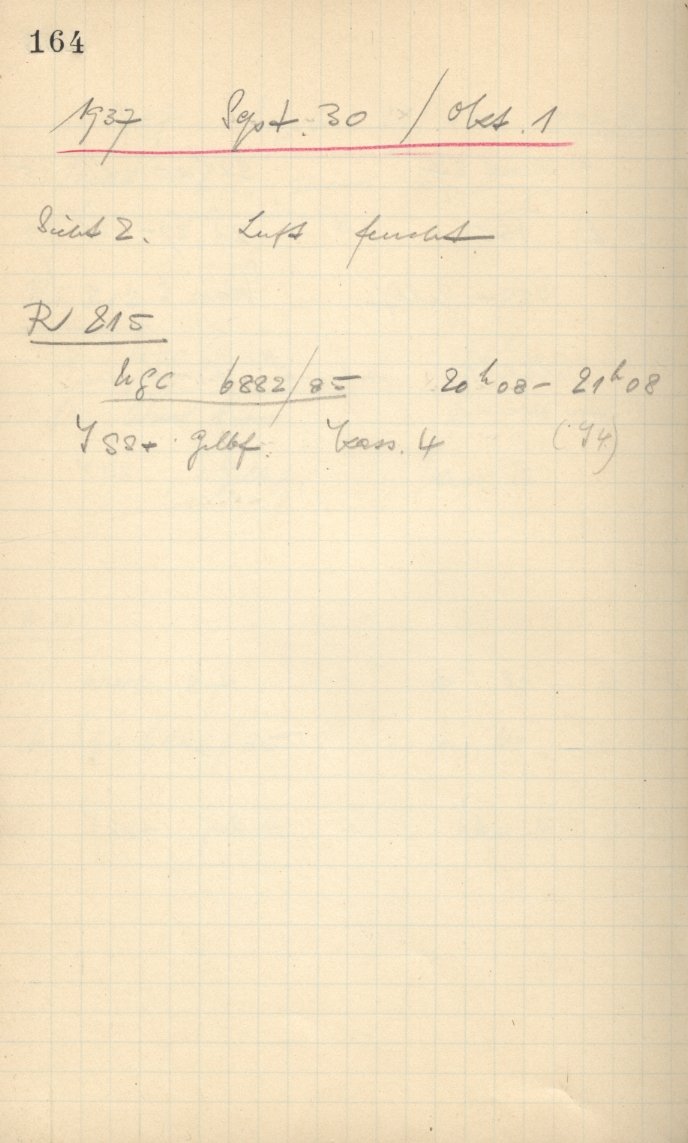 164
1937 Sept. 30 / Okt. 1
Sicht 2. Luft feucht
RV 815
NGC 6882/85 20h08 - 21h08
Gelbf. Kass. 4